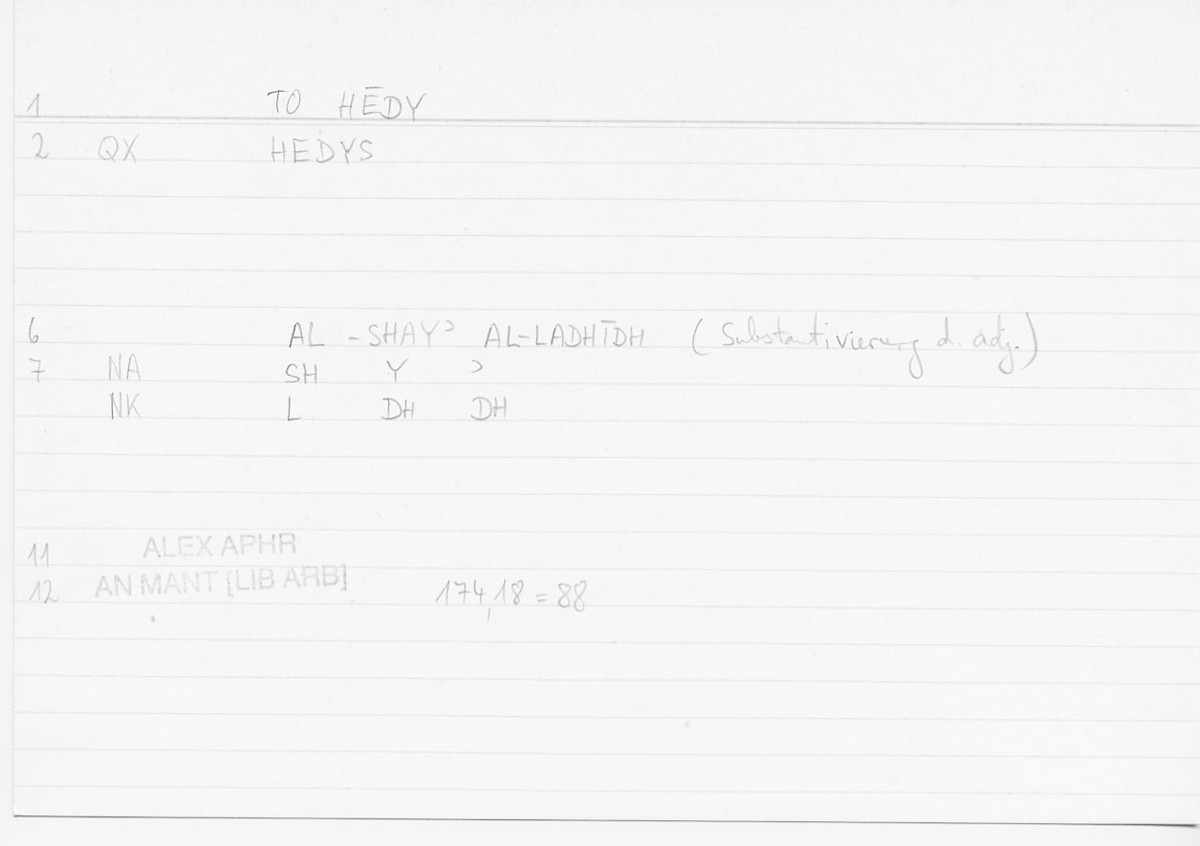 1 TO HĒDY
2 QX HEDYS
6 AL -SHAYʾ AL-LADHĪDH (Substantivierung d. adj.)
7 NA SH Y ʾ
NK L DH DH
11 ALEX APHR
12 AN MANT [LIB ARB] 174,18 = 88